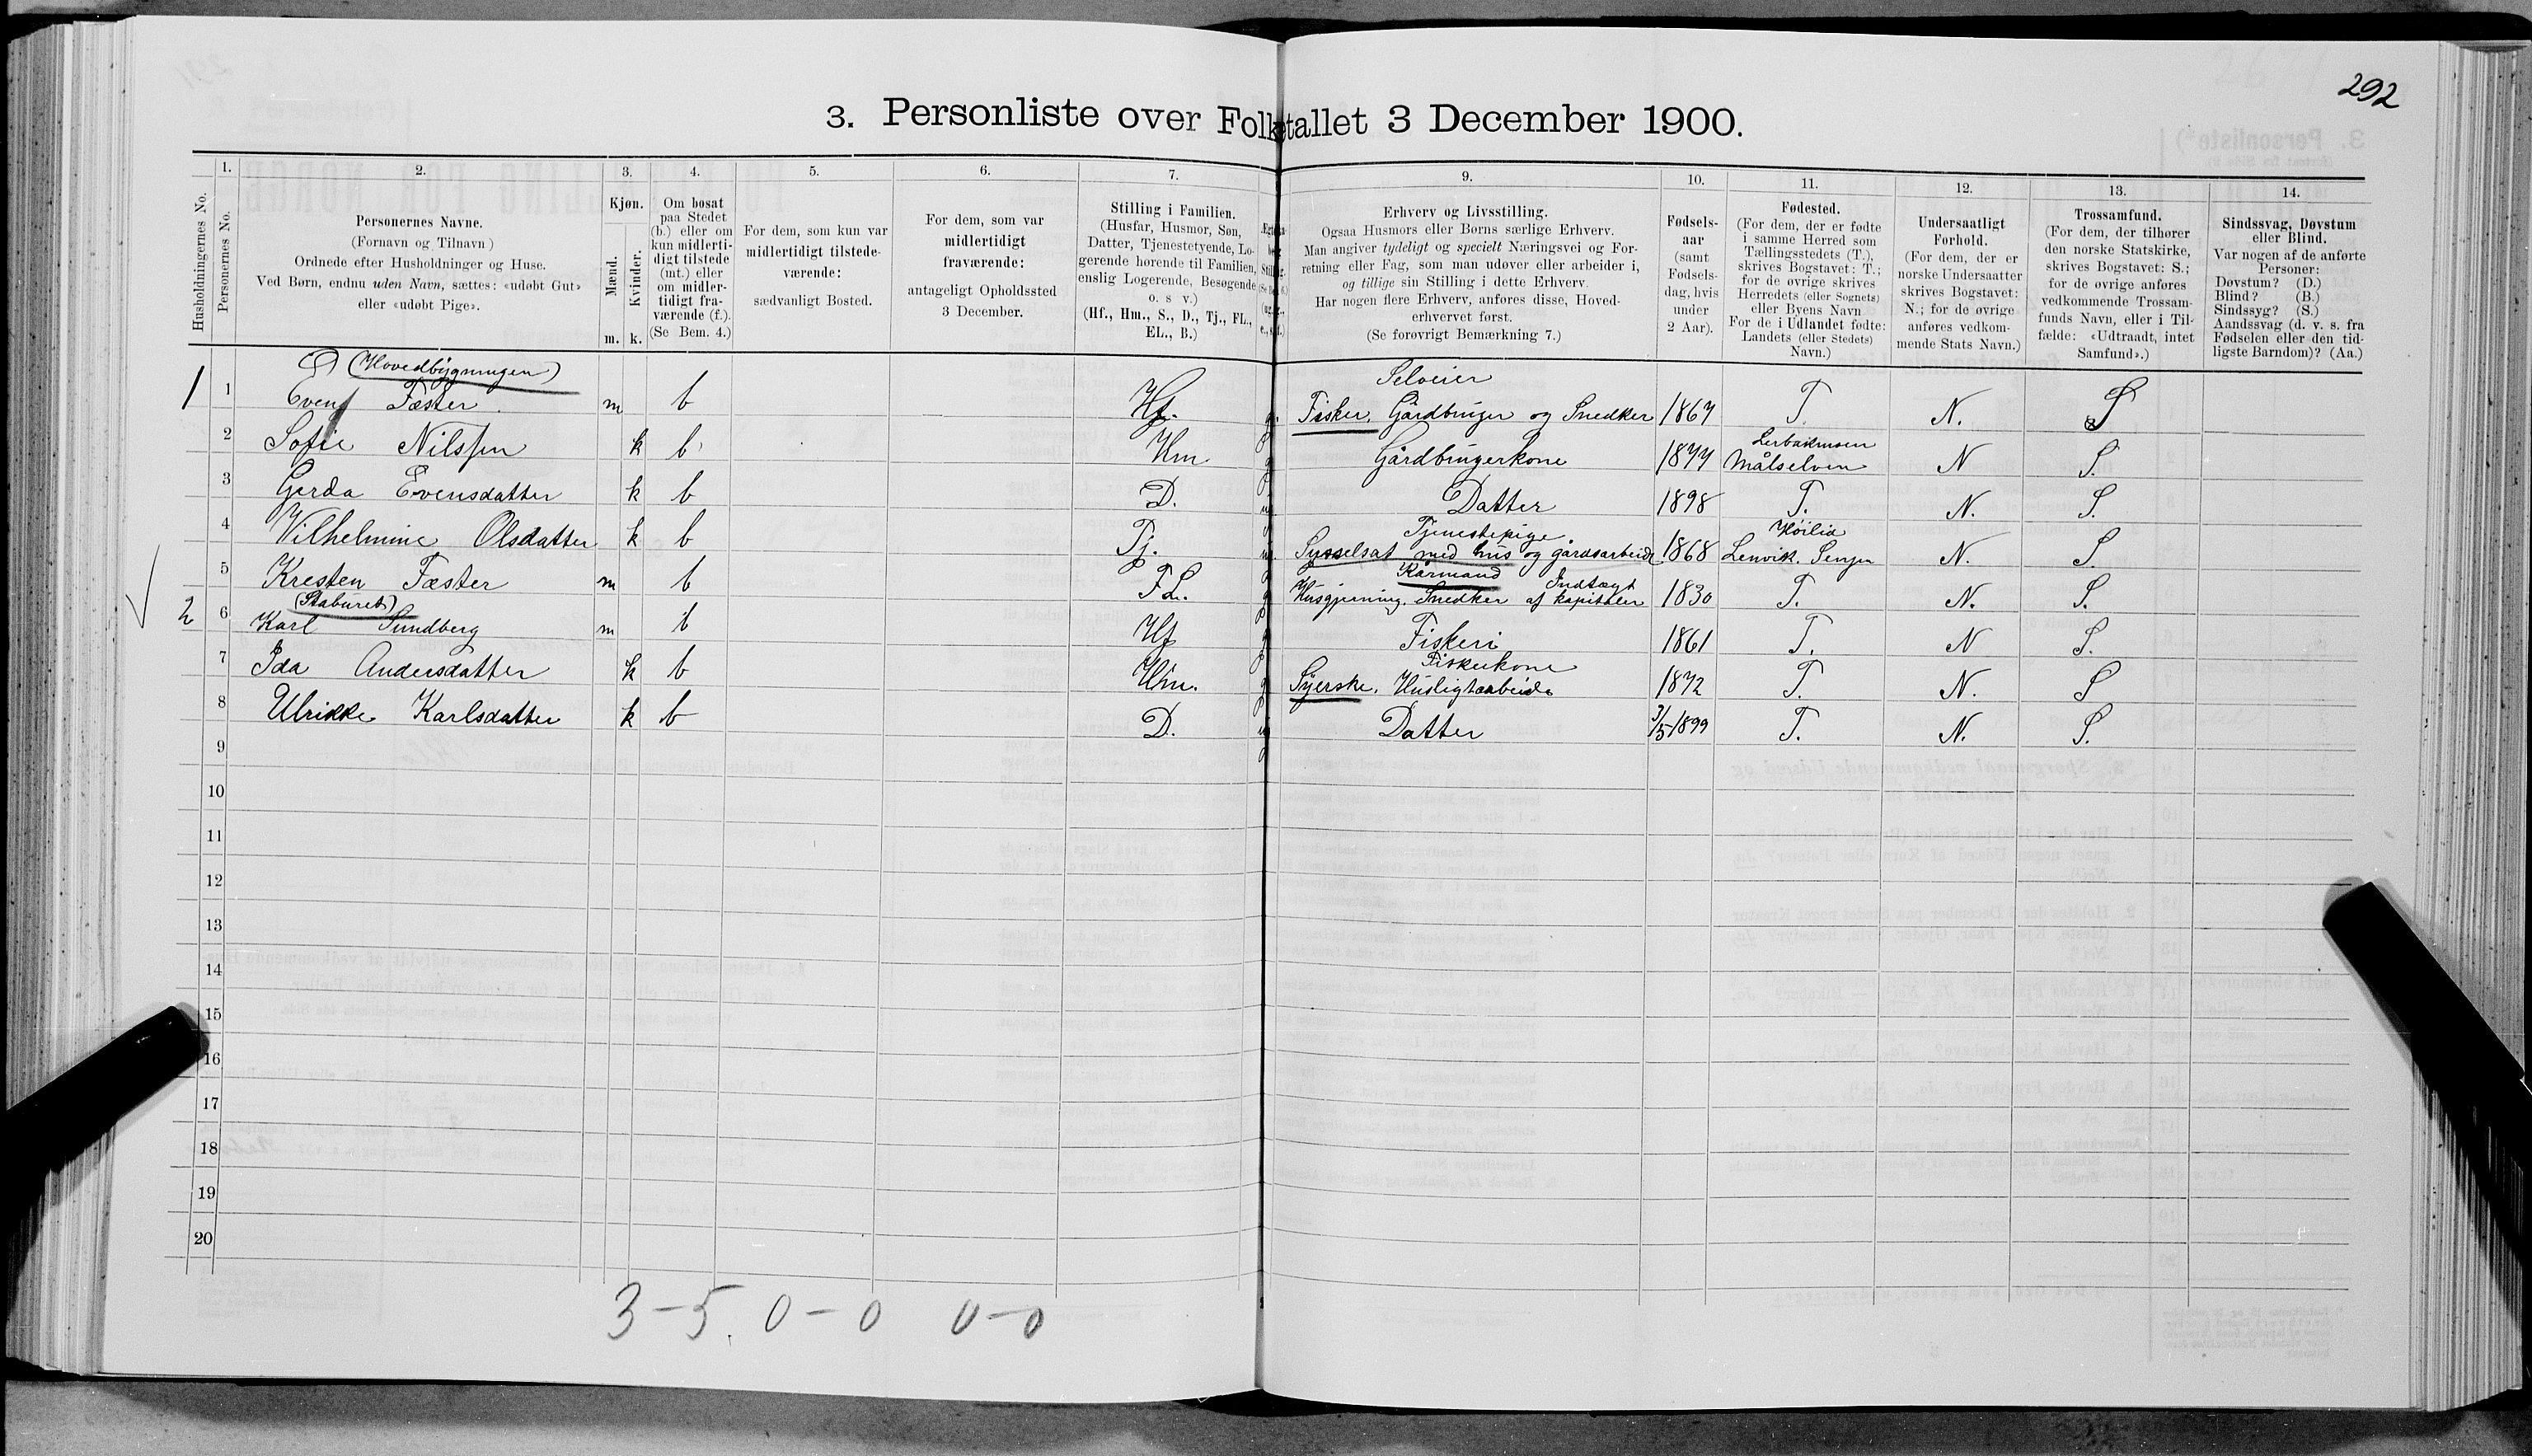 292
3. Personliste over Folketallet 3 December 1900.
Husholdningernes No.
1.
Personernes No.
2.
Personernes Navne.
(Fornavn og Tilnavn)
Ordnede efter Husholdninger og Huse.
Ved Børn, endnu uden Navn, sættes: «udøbt Gut»
eller «udøbt Pige».
3.
Kjøn.
Mænd.
Kvinder.
m. k.
4.
Om bosat
paa Stedet
(b.) eller om
kun midlerti-
digt tilstede
(mt.) eller
om midler-
tidigt fra-
værende (f.).
(Se Bem. 4.)
5.
For dem, som kun var
midlertidigt tilstede-
værende:
sædvanligt Bosted.
6.
For dem, som var
midlertidigt
fraværende:
antageligt Opholdssted
3 December.
7.
Stilling i Familien.
(Husfar, Husmor, Søn,
Datter, Tjenestetyende, Lo-
gerende hørende til Familien,
enslig Logerende, Besøgende
o. s v.)
(Hf., Hm., S., D., Tj., FL.,
EL., B.)
9.
Erhverv og Livsstilling.
Ogsaa Husmors eller Børns særlige Erhverv.
Man angiver tydeligt og specielt Næringsvei og For-
retning eller Fag, som man udøver eller arbeider i,
og tillige sin Stilling i dette Erhverv.
Har nogen flere Erhverv, anføres disse, Hoved-
erhvervet først.
(Se forøvrigt Bemærkning 7.)
10.
Fødsels-
aar
(samt
Fødsels-
dag, hvis
under
2 Aar).
11.
Fødested.
(For dem, der er fødte
i samme Herred som
Tællingsstedets (T.),
skrives Bogstavet: T.;
for de øvrige skrives
Herredets (eller Sognets)
eller Byens Navn
For de i Udlandet fødte:
Landets (eller Stedets)
Navn.)
12.
Undersaatligt
Forhold.
(For dem, der er
norske Undersaatter
skrives Bogstavet:
N.; for de øvrige
anføres vedkom-
mende Stats Navn.)
13.
Trossamfund.
(For dem, der tilhører
den norske Statskirke,
skrives Bogstavet: S.;
for de øvrige anføres
vedkommende Trossam-
funds Navn, eller i Til-
fælde: «Udtraadt, intet
Samfund».)
14.
Sindssvag, Døvstum
eller Blind.
Var nogen af de anførte
Personer:
Døvstum? (D.)
Blind? (B.)
Sindssyg? (S.)
Aandssvag (d. v. s. fra
Fødselen eller den tid-
ligste Barndom)? (Aa.)
(Hovedbygningen) Selveier
1 1 Even Fæster. m b Hf. g. Fisker. Gårdbruger og Snedker 1867 T. N. S
Lerbakmoen
2 Sofie Nilssen k b Hm g Gårdbrugerkone 1877 Målselven N S.
3 Gerda Evensdatter k b D. Datter 1898 T. N. S.
Tjenestepige. Höilia
4 Vilhelmine Olsdatter k b Tj. Sysselsat med hus og gårdsarbeide 1868 Lenvik. Senjen N. S.
Kårmand Indtægt
5 Kresten Fæster m b FL. Husgjerning. Snedker af kapitaler 1830 T. N. S.
(Staburet)
2 6 Karl Sundberg m b Hf g Fiskeri 1861 T. N S.
Fiskerkone
7 Ida Andersdatter k b Hm. g Syerske. Husligtarbeide 1872 T. N. S
8 Ulrikke Karlsdatter k b D. Datter 3/5 1899 T. N. S.
9
10
11
12
13
14
15
16
17
18
19
20
3 – 5. 0 – 0 0 – 0